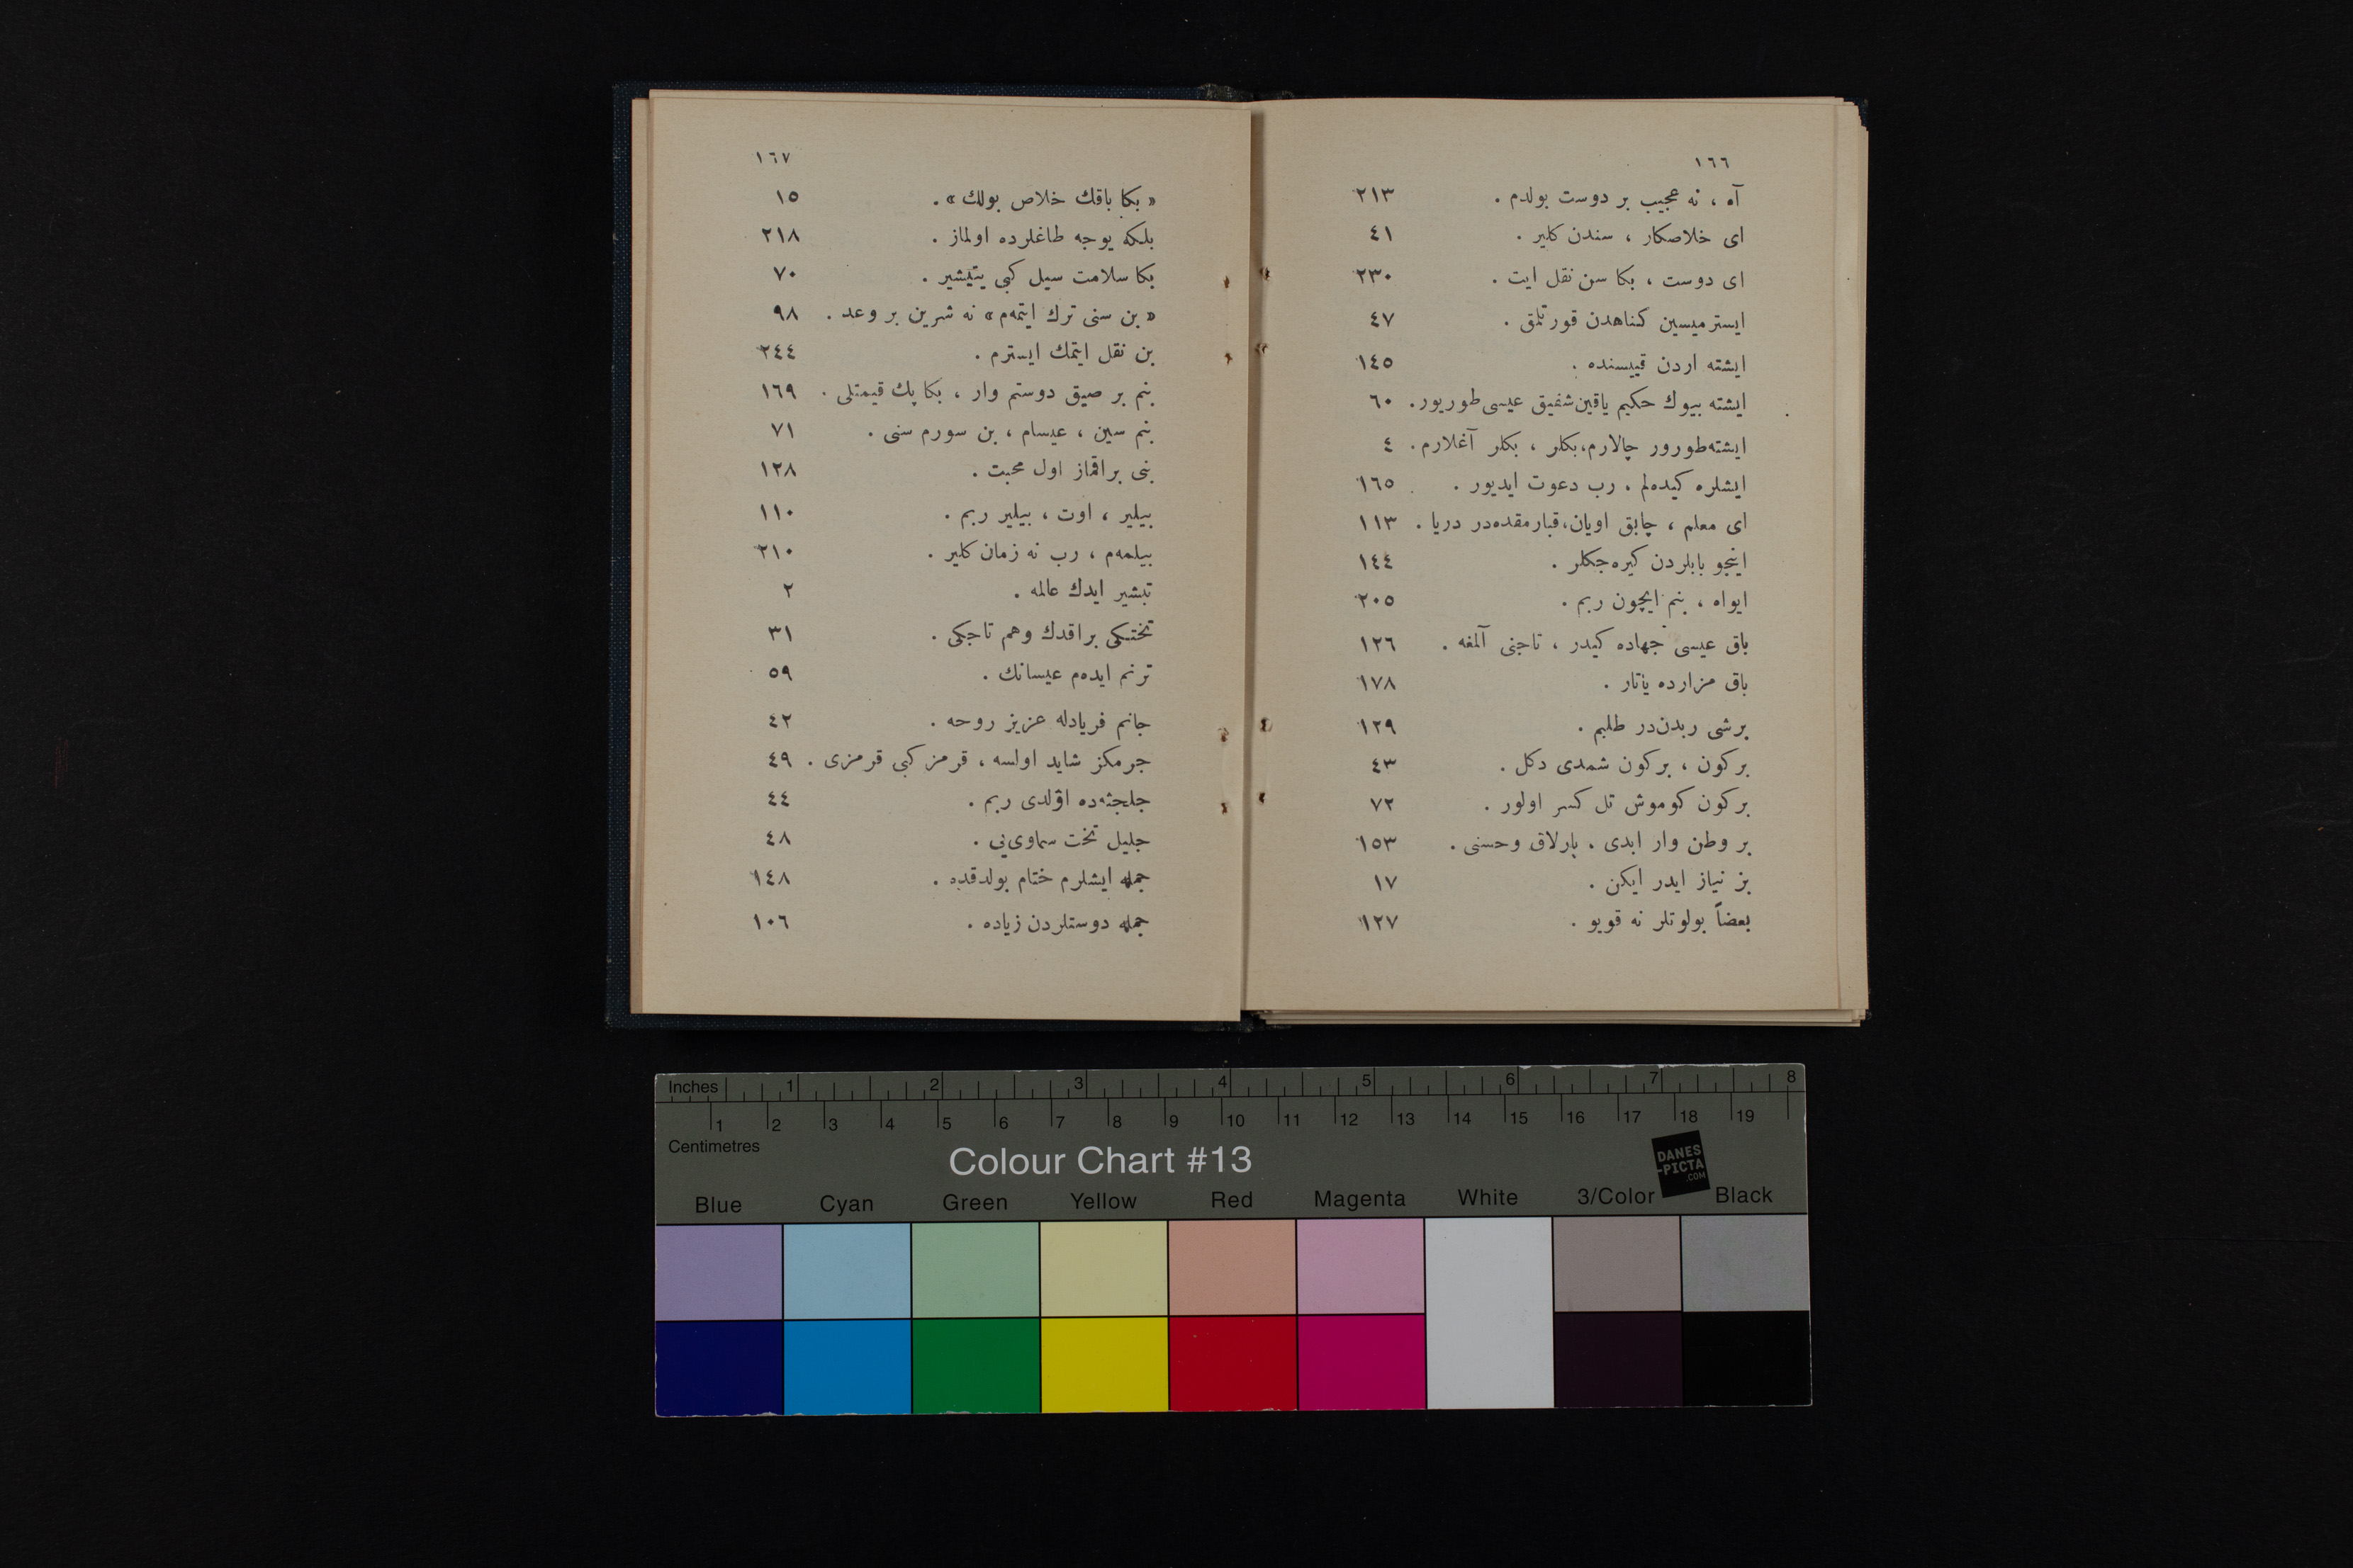 ١٦٦
آه ، نه عجيب بر دوست بولدم . ٢١٣
ای خلاصكار ، سندن كلير . ٤١
ای دوست ، بكا سن نقل ايت . ٢٣٠
ايسترميسين كناهدن قورتلمق . ٤٧
ايشته اردن قييسنده . ١٤٥
ايشته بيوك حكيم ياقين شفيق عيسی طوريور . ٦٠
ايشته طورور چالارم، بكلر ، بكلر آغلارم . ٤
ايشلره كيده‌لم . رب دعوت ايديور . ١٦٥
ای معلم ، چابق اويان، قبارمقده‌در دريا . ١١٣
اينجو بابلردن كيره‌جكلر . ١٤٤
ايواه ، بنم ايچون ربم . ٢٠٥
باق عيسی جهاده كيدر ، تاجنی آلمغه . ١٢٦
باق مزارده ياتار . ١٧٨
برشی ربدن‌در طلبم . ١٢٩
بركون ، بركون شمدی دكل . ٤٣
بركون كوموش تل كسر اولور . ٧٢
بر وطن وار ابدی . پارلاق وحسنی . ١٥٣
بز نياز ايدر ايكن . ١٧
بعضاً بولوتلر نه قويو . ١٢٧
١٦٧
« بكا باقك خلاص بولك » . ١٥
بلكه يوجه طاغلرده اولماز . ٢١٨
بكا سلامت سيل كبی يتيشير . ٧٠
« بن سنی ترك ايتمه‌م » نه شيرين بر وعد . ٩٨
بن نقل ايتمك ايسترم . ٢٤٤
بنم بر صيق دوستم وار ، بكا پك قيمتلی . ١٦٩
بنم سين ، عيسام ، بن سورم سنی . ٧١
بنی براقماز اول محبت . ١٢٨
بيلير ، اوت ، بيلير ربم . ١١٠
بيلمه‌م ، رب نه زمان كلير . ٢١٠
تبشير ايدك عالمه . ٢
تختكی براقدك وهم تاجكی . ٣١
ترنم ايده‌م عيسانك . ٥٩
جانم فريادله عزيز روحه . ٤٢
جرمكز شايد اولسه ، قرمز كبی قرمزی . ٤٩
جلجثه‌ده اۆلدی ربم . ٤٤
جليل تخت سماوی‌يی . ٤٨
جمله ايشلرم ختام بولدقده . ١٤٨
جمله دوستلردن زياده . ١٠٦
Inches 1 2 3 4 5 6 7 8
1 2 3 4 5 6 7 8 9 10 11 12 13 14 15 16 17 18 19
Centimetres
Colour Chart #13
DANES
-PICTA
.COM
Blue Cyan Green Yellow Red Magenta White 3/Color Black